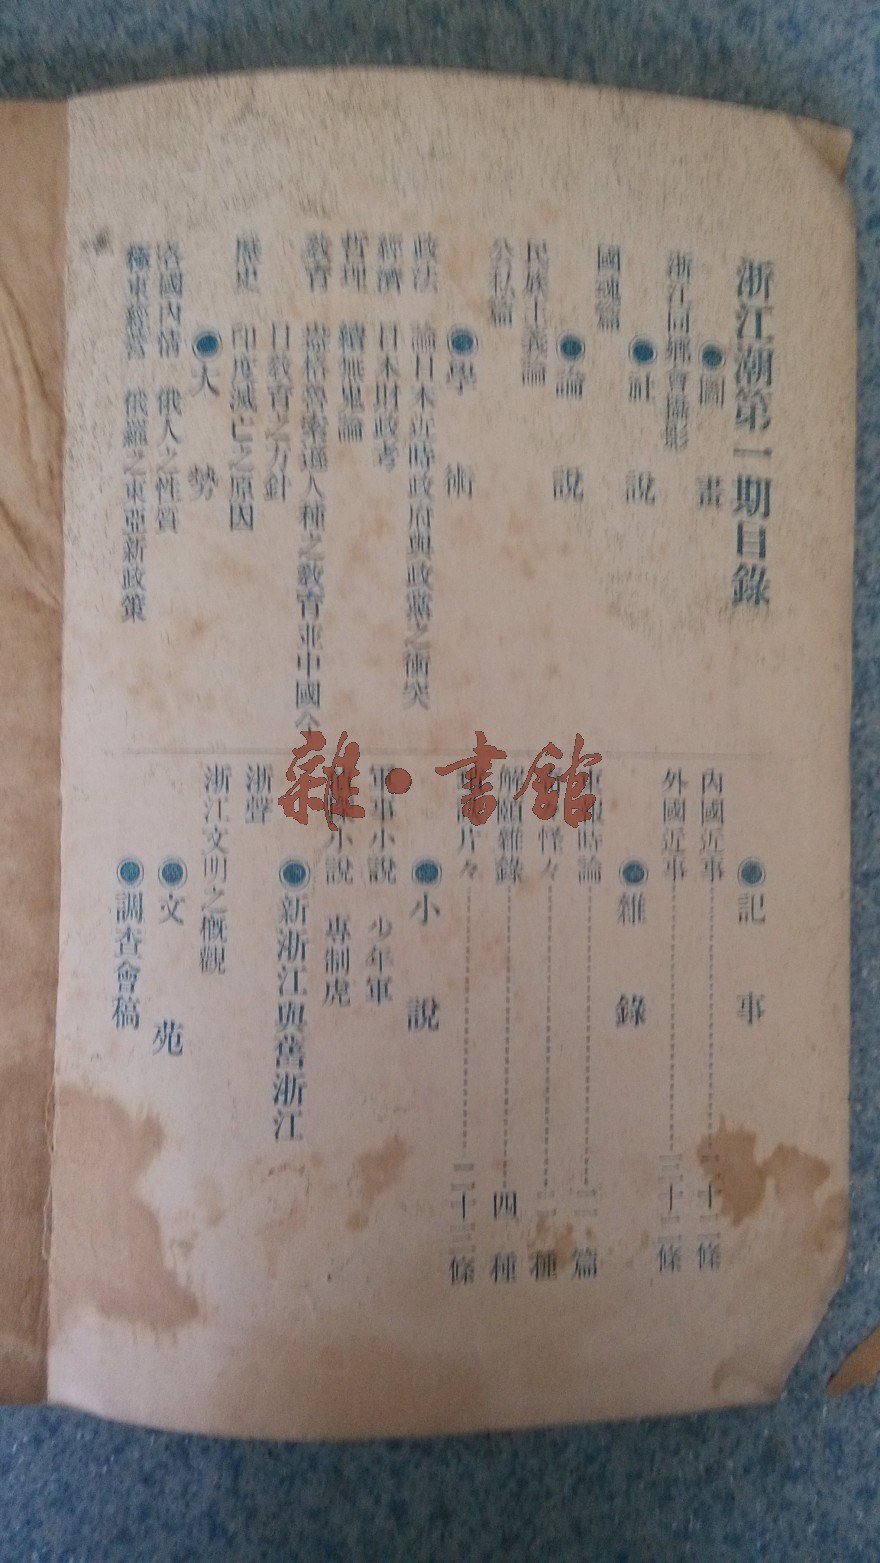 浙江潮第一期目錄
●圖畫
浙江同鄉會攝影
●社說
國魂篇
●論說
民族主義論
公私篇
●學術
政法 論日本近時政府與政黨之衝突
經濟 日本財政考
哲理 續無鬼論
教育 盎格魯索遜人種之教育並中國今
日教育之方針
歷史 印度滅亡之原因
●大勢
各國內情 俄人之性質
極東經營 俄羅之東亞新政策
●記事
內國近事 十二條
外國近事 三十二條
●雜錄
東報時論 二篇
怪々 二種
解頤雜錄 四種
片々 二十三條
●小說
軍事小說 少年軍
小說 專制虎
●新浙江與舊浙江
浙聲
浙江文明之概觀
●文苑
●調查會稿
雜·書館